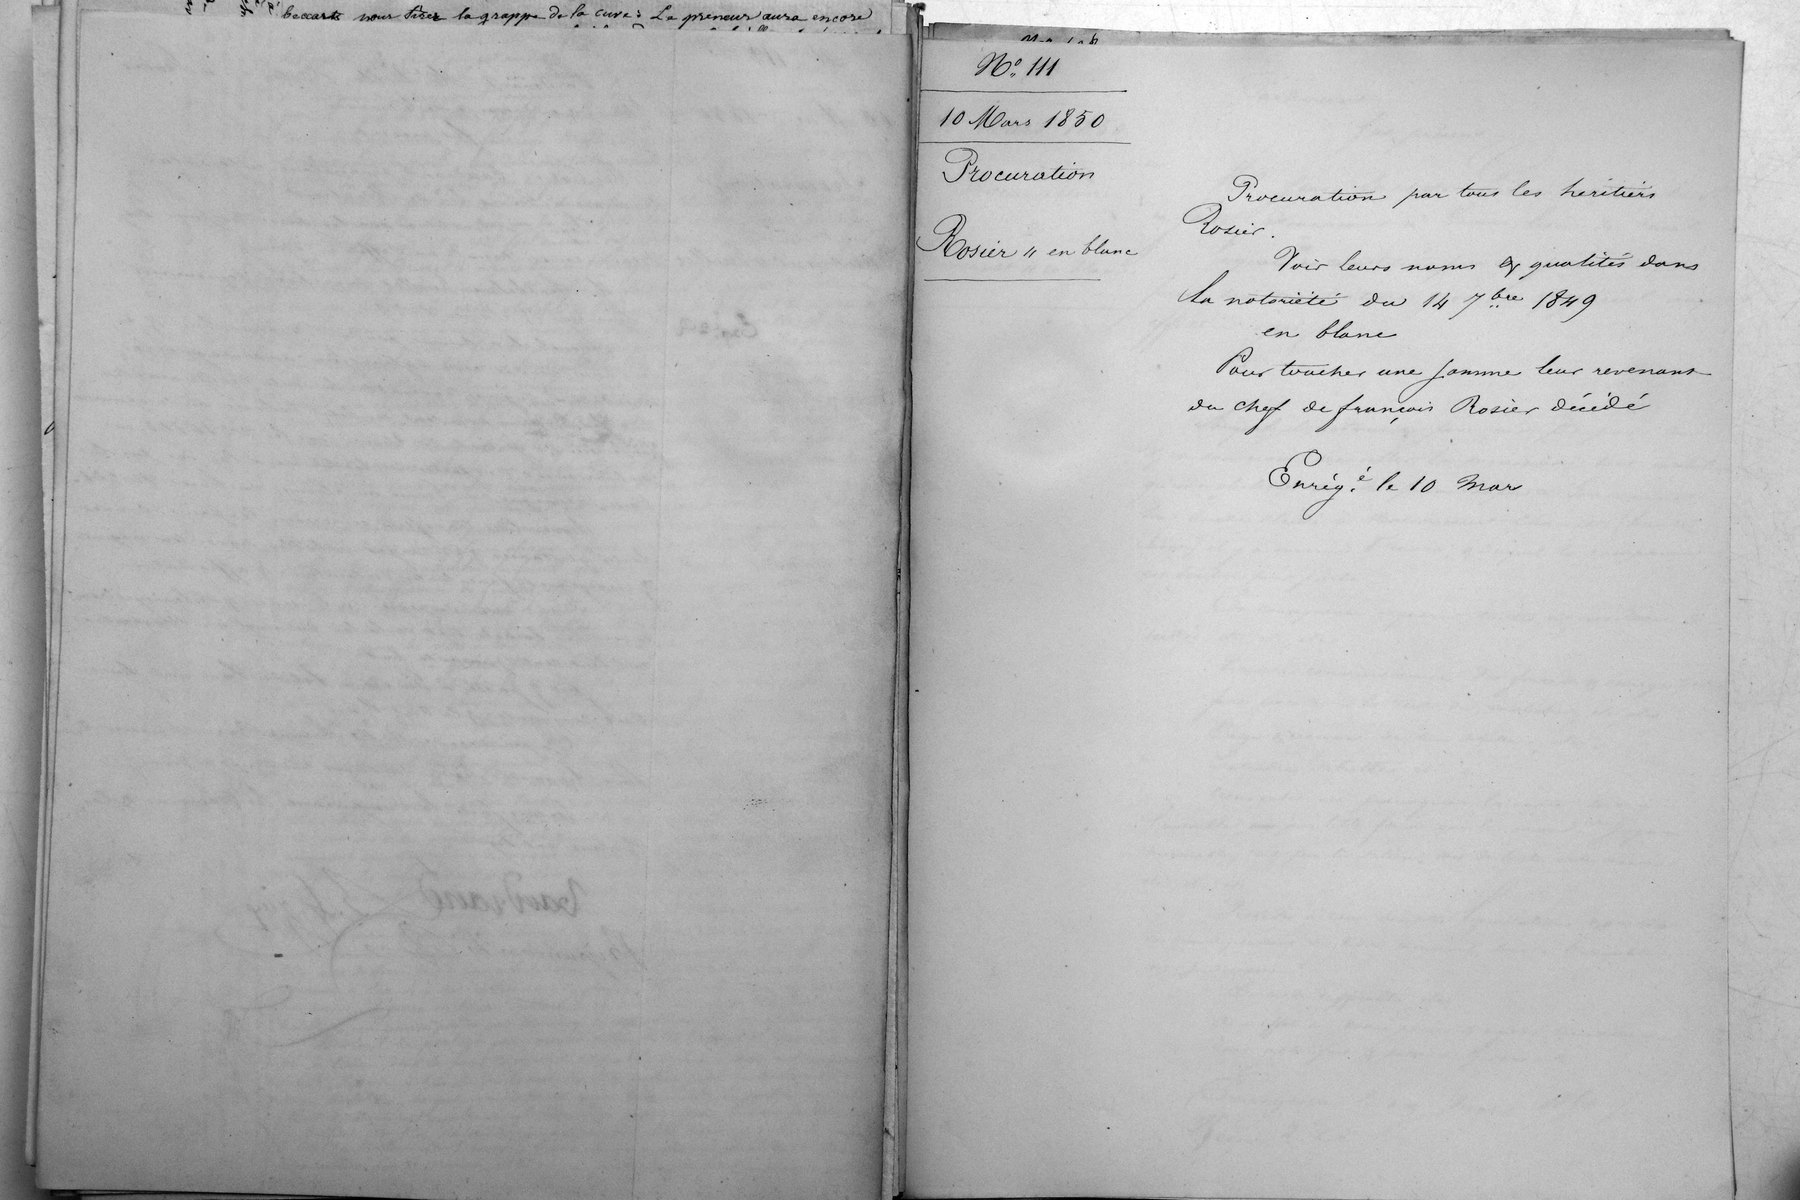 beccarts pour tirer la grappe de la cuve: Le preneur aura encore
N.º 111
10 Mars 1850
Procuration
Rosier " en blanc
Procuration par tous les heritiers
Rosier.
Voir leurs noms & qualités dans
la notoriété du 14 7bre 1849
en blanc
Pour toucher une somme leur revenant
du chef de françois Rosier décédé
Enrég.é le 10 mar